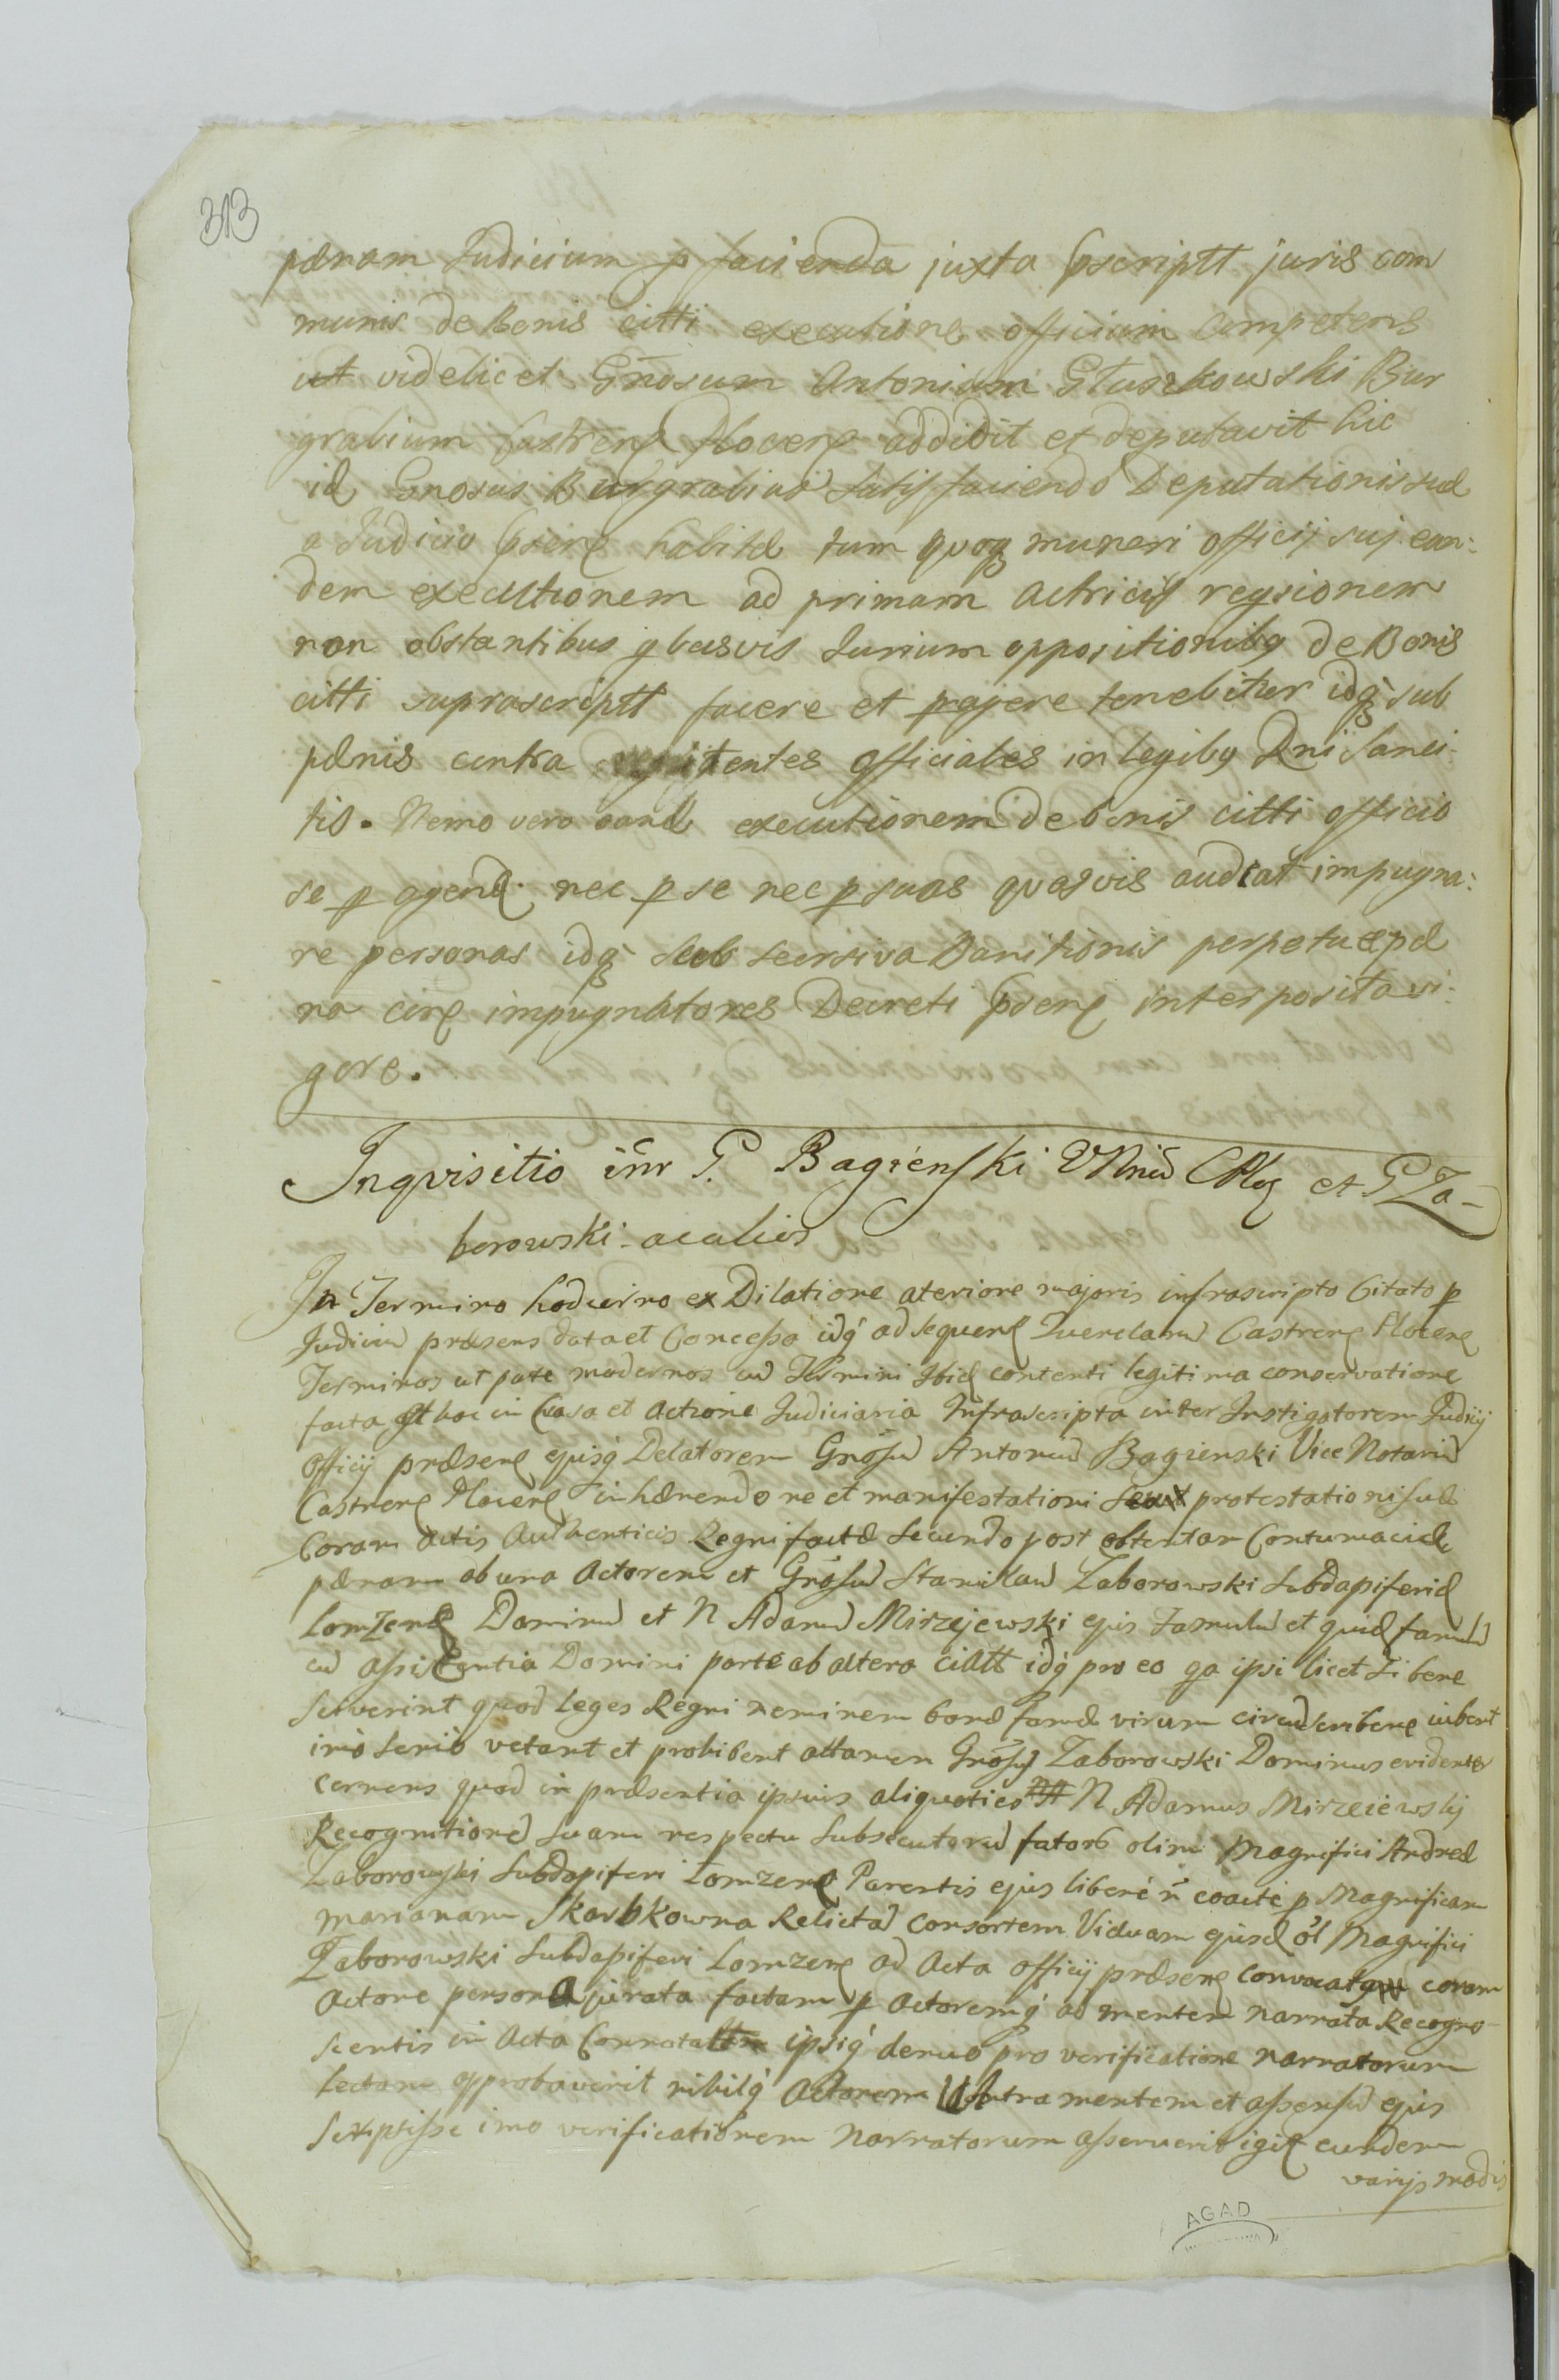 313
pænam Judicium p facienda juxta pscriptt juris com
munis de Bonis citti executione officium Competens
ut videlicet Gnosum Antonium Głuszkowski Bur
grabium Castrens Plocens addidit et deputavit hic
id Gnosus Burgrabius Satisfaciendo Deputationis suæ
a Judicio psens habitæ tum quoq muneri officij suj ean:
dem executionem ad primam Actricis reqsionem
non obstantibus qbusvis Jurium oppositionibq de Bonis
citti suprascriptt facere et peragere tenebitur idq sub
pænis contra officiales in legibq Rni Sanci-
tis. Nemo vero eand executionem de bonis citti officio
se p agend. nec p se nec p suas quasvis audeat impugna:
re personas idq sub Banitionis perpetuæ pæ
na circ impugnatores Decreti psens interposita vi:
gore.
Inqvisitio inr G. Bagieński VNriu CPloc et G Za-
borowski acalios
In Termino hodierno ex Dilatione ateriore majoris infrascripto Citato p
Judiciu præsens data et Concessa idq ad sequens Querelaru Castrens Plocens
Terminos ut pate modernos cu Termini Ibid contenti legitima conservatione
facta et hoc in Causa et Actione Judiciaria Infrascripta inter Instigatorem Judicij
Officij præsens ejusq Delatorem Grosu Antoniu Bagienski Vice Notariu
Castrens Plocens inhærendo re et manifestationi seu protestationi suæ
Coram actis Authenticis Regni factæ Secundo post obtentam Contumaciæ
pænam ab una Actorem et Grosu Stanislau Zaborowski Subdapiferid
Lomzens Dominu et N Adamu Mirzejewski ejus Famulu et quid famulu
cu assistentia Domini parte ab altera citatt idq pro eo qa ipsi licet Libere
Sciverint quod Leges Regni neminem bonæ famæ virum circuscribere iubent
imo serio vetant et prohibent attamen Grosq Zaborowski Dominus evidenter
cernens quod in præsentia ipsius aliquoties N Adamus Mirzeiewskij
Recognitione suam respectu subsecutoru fator olim Magnifici Andreæ
Zaborowski Subdapiferi Lomzens Parentis ejus liberé ñ coacté p Magnificam
Marianam Skarbkowna Relicta Consortem Viduam ejusd ol Magnifici
Zaborowski Subdapiferi Lomzens ad Acta officij præsens convocata coram
Actore persona jurata factam p Actoremq ad mentem narrata Recogno-
scentis in Acta Connotatam ipsiq denuo pro verificatione narratorum
Lectam approbaverit nihilq Actorem Contra mentem et assensu ejus
Scripsisse imo verificationem Narratorum asseruerit igit eundem
varijs modis
AGAD